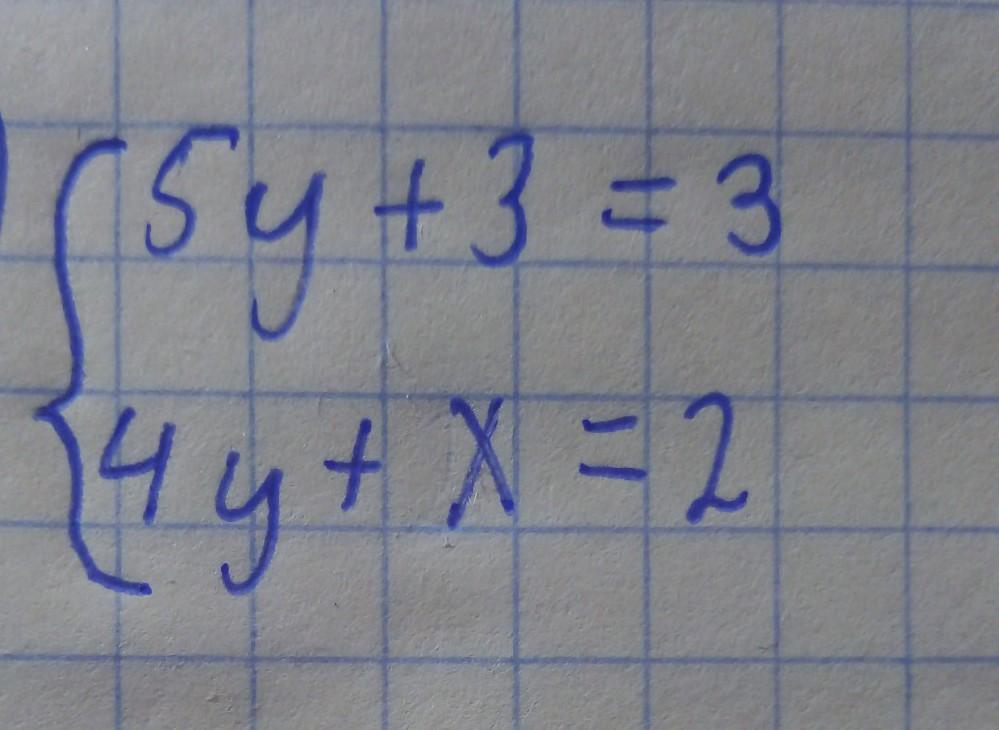 5y + 3 = 3
4y + x = 2